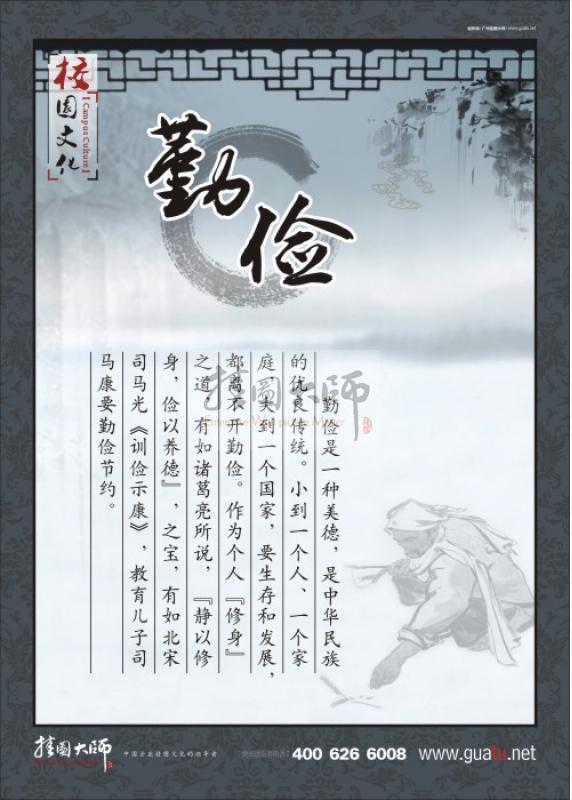 校园文化
【Campus Culture】
勤俭
勤俭是一种美德，是中华民族
的优良传统。小到一个人、一个家
庭，大到一个国家，要生存和发展，
都离不开勤俭。作为个人『修身』
之道，有如诸葛亮所说，『静以修
身，俭以养德』，之宝，有如北宋
司马光《训俭示康》，教育儿子司
马康要勤俭节约。
挂图大师
挂图大师
中国企业挂图文化的领导者
400 626 6008
www.guatu.net